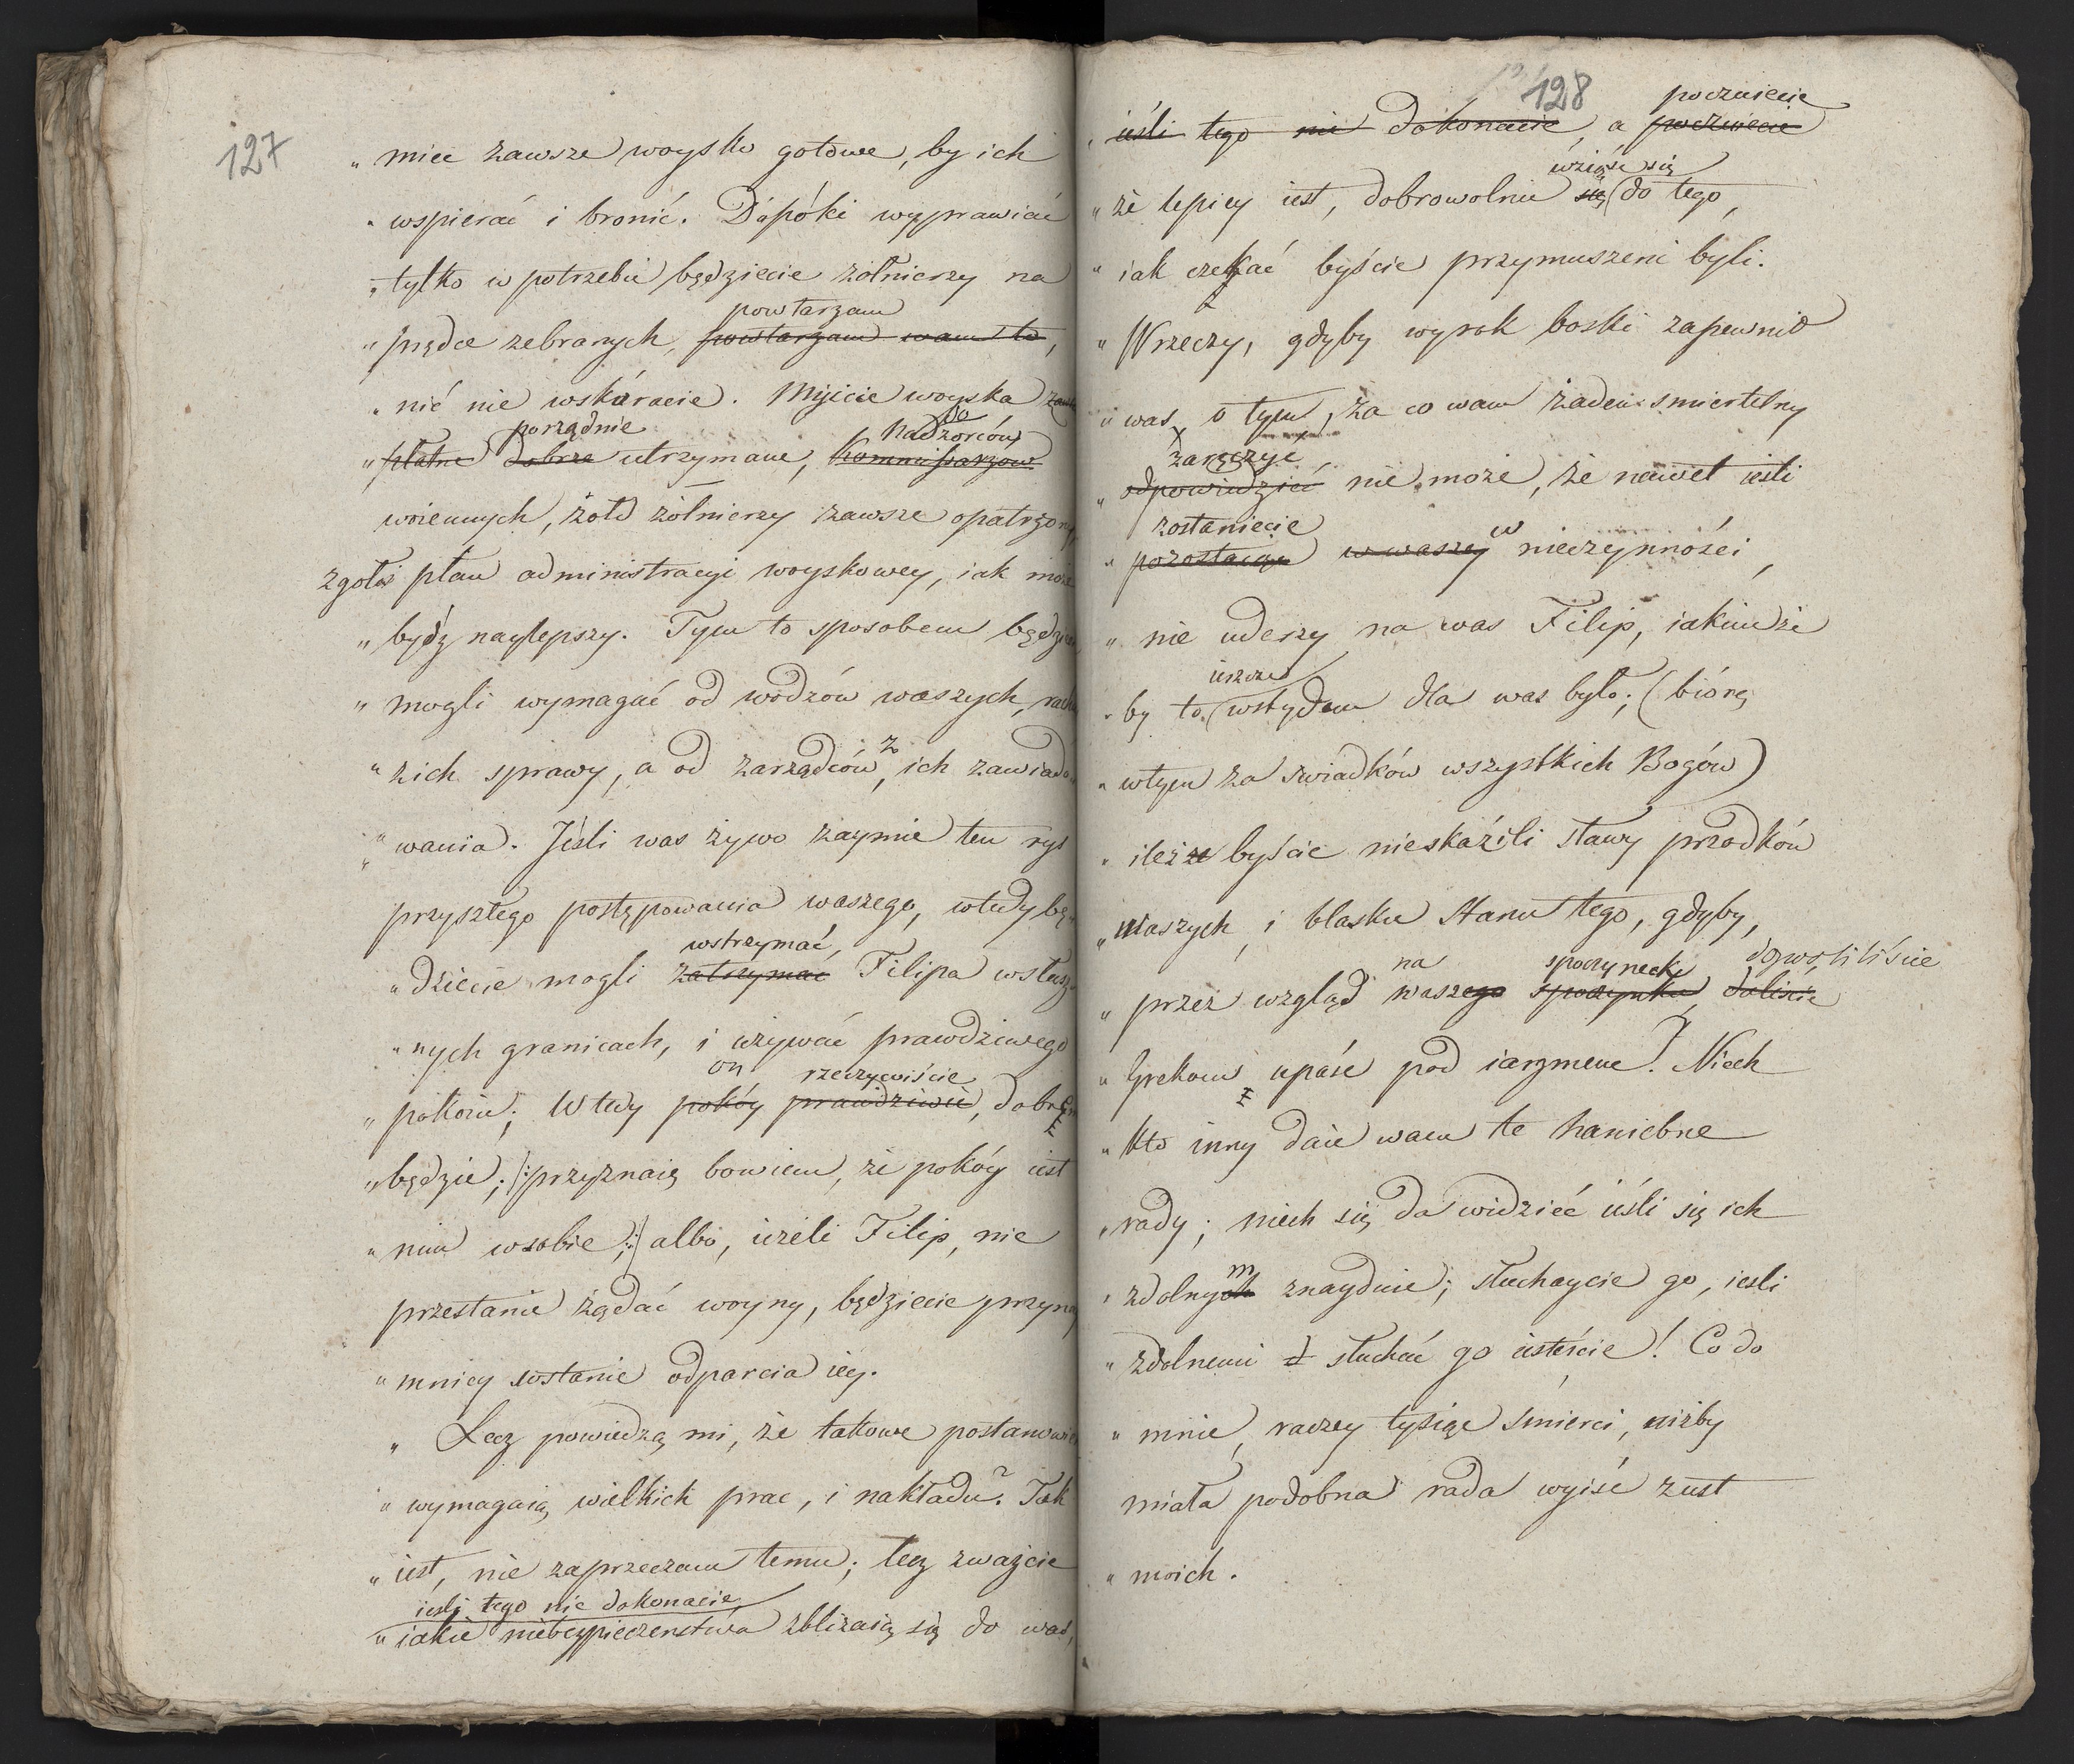 127
„ mieć zawsze woysko gotowe, by ich
„ wspierać i bronić. Dopóki wyprawiać
„ tylko w potrzebie będziecie żołnierzy na
powtarzam
„ prędce zebranych, powtarzam wam to,
„ nić nie wskóracie. Miejcie woyska
porządnie do Nadzorców
„ płatne dobrze utrzymane, Kommissarzow
woiennych, żołd żołnierzy zawsze opatrzony
zgoła plan administracyi woyskowey, iak może
„ bydź naylepszy. Tym to sposobem będzie
„ mogli wymagać od wodzów waszych,
„ z ich sprawy, a od zarządców, z ich zawiado
„ wania. Jeśli was żywo zaymie ten rys
przyszłego postępowania waszego, wtedy bę
wstrzymać
„ dziecie mogli zatrzymać Filipa w słusz
„ nych granicach, i używać prawdziwego
on rzeczywiście
„ pokoiu; Wtedy pokóy prawdziwie, dobrem
„ będzie; /:przyznaię bowiem, że pokóy iest
„ nim w sobie;:/ albo, ieżeli Filip, nie
przestanie żądać woyny, będziecie przyna
„ mniey w stanie odparcia iey.
„ Lecz powiedzą mi, że takowe postanowie
„ wymagaią wielkich prac, i nakładu? Tak
„ iest, nie zaprzeczam temu; lecz zważcie
iesli tego nie dokonacie
„ iakie niebezpieczenstwa zbliżaią się do was,
128
poczuiecie
„ ieśli tego nie dokonacie, a poczuiecie
wziąść się
„ że lepiey iest, dobrowolnie się do tego,
„ iak czekać byście przymuszeni byli.
„ W rzeczy, gdyby wyrok boski zapewnił
„ was o tym, za co wam żaden smiertelny
zaręczyć
„ odpowiedzieć nie może, że nawet ieśli
zostaniecie w
„ pozostaiąc w waszey nieczynności,
„ nie uderzy na was Filip, iakimże
ieszcze
„ by to wstydem dla was było; (biorę
„ w tym za świadków wszystkich Bogów)
„ ileż że byście nieskazili sławy przodków
„ Waszych i blasku Stanu tego, gdyby,
na spoczynek dozwoliliście
„ przez wzgląd waszego spoczynku, daliście
„ Grekom upaść pod iarzmem? Niech
„ kto inny daie wam te haniebne
„ rady; niech się da widzieć ieśli się ich
m
„ zdolnych znayduie; słuchaycie go, iesli
„ zdolnemi słuchać go iesteście! Co do
„ mnie, raczey tysiąc śmierci, niżby
miała podobna rada wyiść z ust
„ moich.